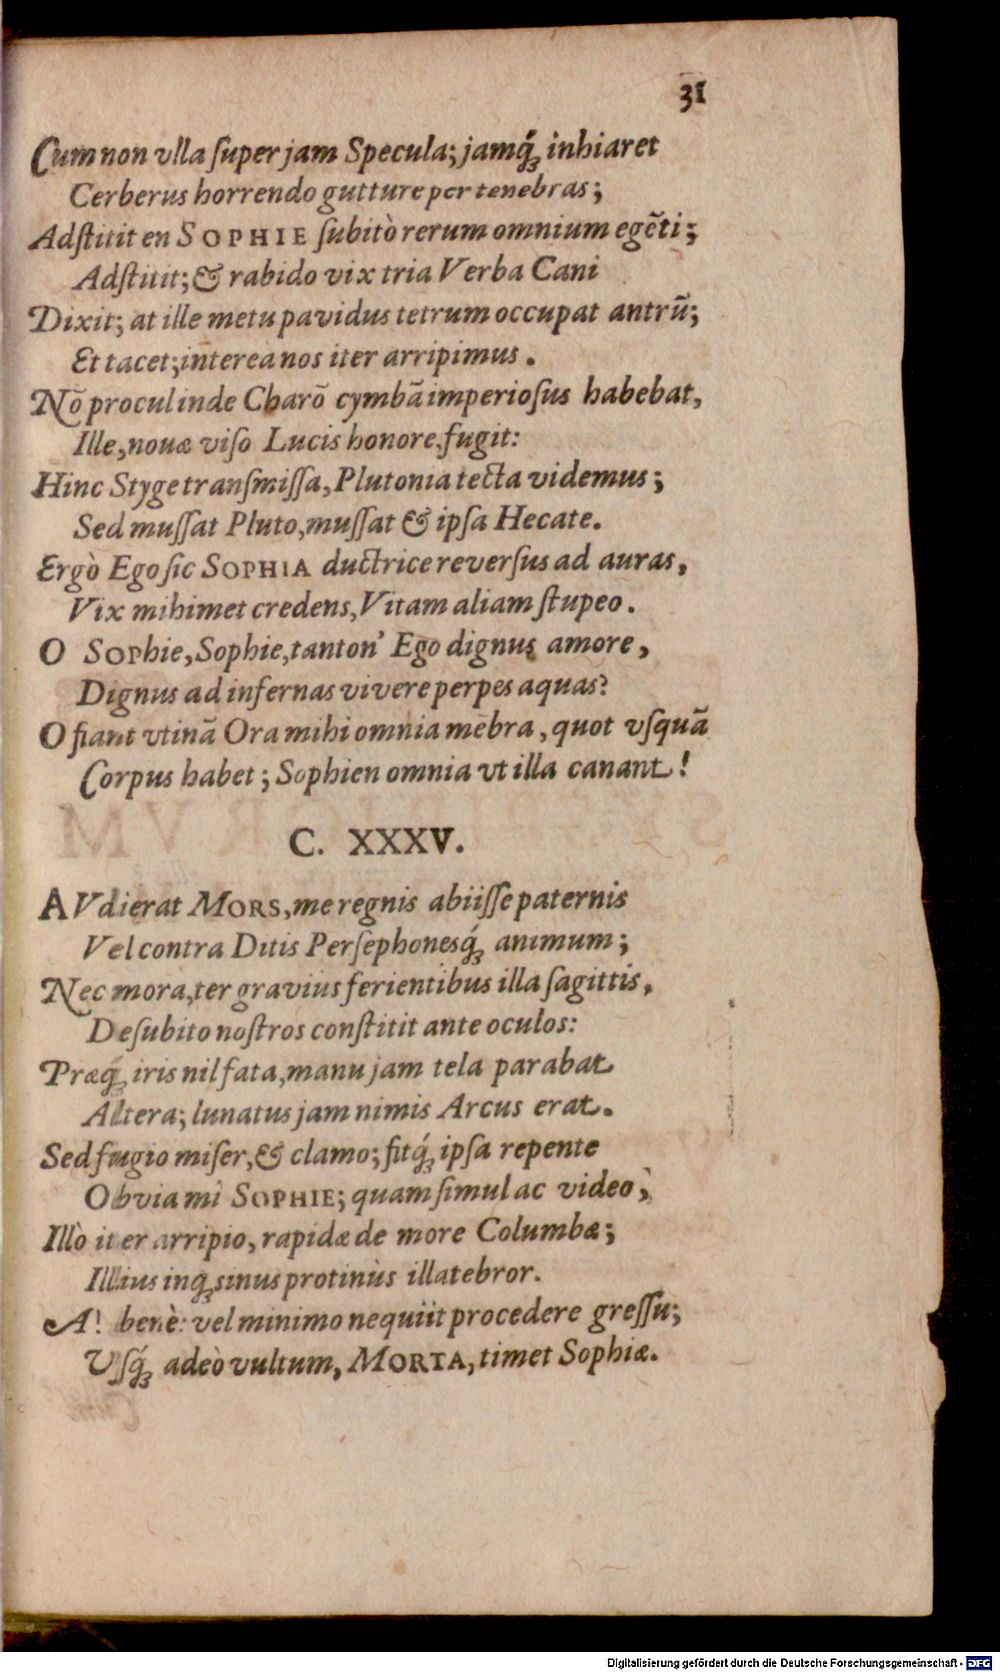 31
Cum non vlla super jam Specula; jamq́ꝫ inhiaret
Cerberus horrendo gutture per tenebras;
Adstitit en SOPHIE subitò rerum omnium egẽti;
Adstitit; & rabido vix tria Verba Cani
Dixit; at ille metu pavidus tetrum occupat antrũ;
Et tacet; interea nos iter arripimus.
Nõ procul inde Charõ cymbã imperiosus habebat,
Ille, novæ viso Lucis honore, fugit:
Hinc Styge transmissa, Plutonia tecta videmus;
Sed mussat Pluto, mussat & ipsa Hecate.
Ergò Ego sic SOPHIA ductrice reversus ad auras,
Vix mihimet credens, Vitam aliam stupeo.
O SOPhie, Sophie, tanton' Ego dignus amore,
Dignus ad infernas vivere perpes aquas?
O fiant vtinã Ora mihi omnia mẽbra, quot vsquã
Corpus habet; Sophien omnia ut illa canant!
C. XXXV.
AVdierat MORS, me regnis abiisse paternis
Vel contra Ditis Persephonesq́ꝫ animum;
Nec mora, ter gravius ferientibus illa sagittis,
Desubito nostros constitit ante oculos:
Præq́ꝫ iris nil fata, manu jam tela parabat
Altera; lunatus jam nimis Arcus erat.
Sed fugio miser, & clamo; fitq́ꝫ ipsa repente
Obvia mî SOPHIE; quam simul ac video,
Illò iter arripio, rapidæ de more Columbæ;
Illius inqꝫ sinus protinùs illatebror.
A! benè: vel minimo nequiit procedere gressu;
Usq́ꝫ adeò vultum, MORTA, timet Sophiæ.
Digitalisierung gefördert durch die Deutsche Forschungsgemeinschaft - DFG